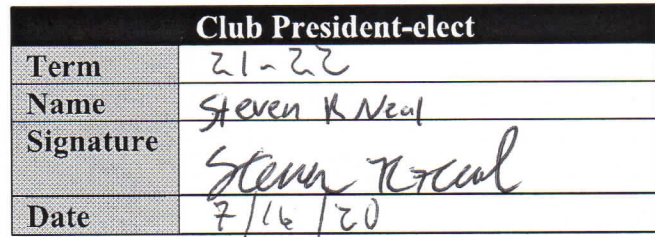 Club President-elect
Term 21-22
Name Steven R Neal
Signature Steven R Neal
Date 7/16/20